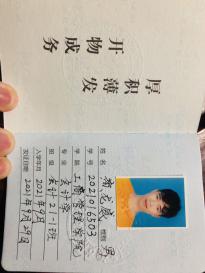 厚积薄发
开物成务
姓名
性别 男
学号 2021016503
学院 工商管理学院
专业 会计学
班级 会计21-1班
入学年月 2021年9月
发证日期 2021年9月29日